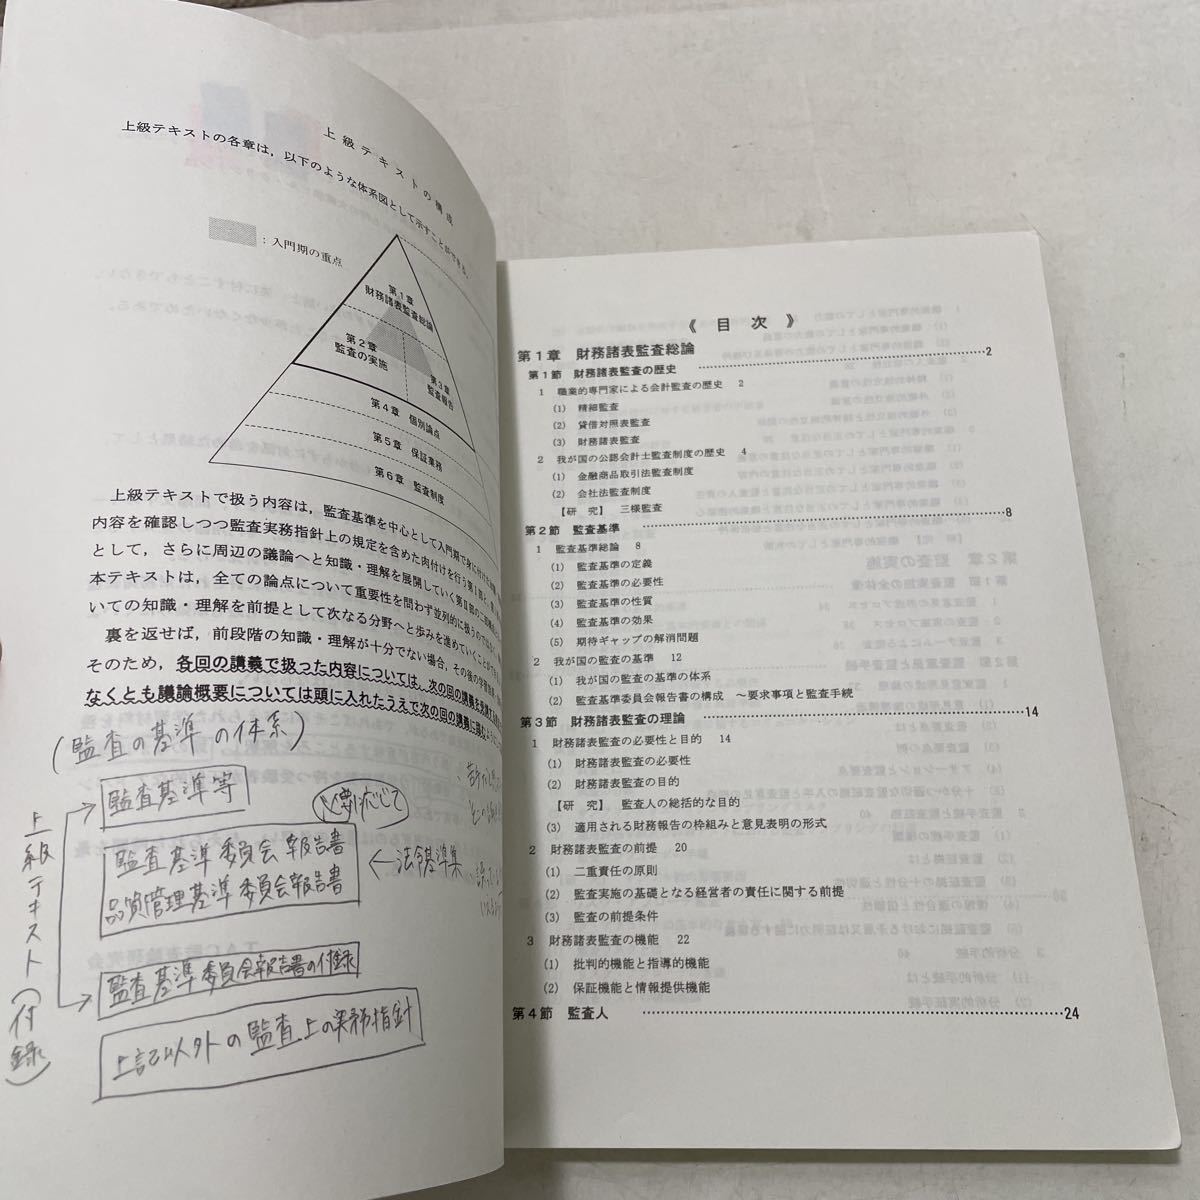 上級テキストの構成
上級テキストの各章は，以下のような体系図として示すことができる。
：入門期の重点
第1章
財務諸表監査総論
第2章
監査の実施
第3章
監査報告
第4章 個別論点
第5章 保証業務
第6章 監査制度
上級テキストで扱う内容は，監査基準を中心として入門期で身に付けた
内容を確認しつつ監査実務指針上の規定を含めた肉付けを行う第Ⅰ部と，
として，さらに周辺の議論へと知識・理解を展開していく第Ⅱ部の二部構成
本テキストは，全ての論点について重要性を問わず並列的に扱うのではなく
いての知識・理解を前提として次なる分野へと歩みを進めていくことができ
裏を返せば，前段階の知識・理解が十分でない場合，その後の学習
そのため，各回の講義で扱った内容については，次の回の講義を受講する
なくとも議論概要については頭に入れたうえで次の回の講義に臨むように
(監査の基準の体系)
監査基準等
必要に応じて
監査基準委員会報告書
品質管理基準委員会報告書
←法令基準集
監査基準委員会報告書の付録
上記以外の監査上の実務指針
上級テキスト(付録)
《 目 次 》
第1章 財務諸表監査総論
第1節 財務諸表監査の歴史 2
1 職業的専門家による会計監査の歴史 2
(1) 精細監査
(2) 貸借対照表監査
(3) 財務諸表監査
2 我が国の公認会計士監査制度の歴史 4
(1) 金融商品取引法監査制度
(2) 会社法監査制度
【研 究】 三様監査
第2節 監査基準 8
1 監査基準総論 8
(1) 監査基準の定義
(2) 監査基準の必要性
(3) 監査基準の性質
(4) 監査基準の効果
(5) 期待ギャップの解消問題
2 我が国の監査の基準 12
(1) 我が国の監査の基準の体系
(2) 監査基準委員会報告書の構成 ～要求事項と監査手続
第3節 財務諸表監査の理論 14
1 財務諸表監査の必要性と目的 14
(1) 財務諸表監査の必要性
(2) 財務諸表監査の目的
【研 究】 監査人の総括的な目的
(3) 適用される財務報告の枠組みと意見表明の形式
2 財務諸表監査の前提 20
(1) 二重責任の原則
(2) 監査実施の基礎となる経営者の責任に関する前提
(3) 監査の前提条件
3 財務諸表監査の機能 22
(1) 批判的機能と指導的機能
(2) 保証機能と情報提供機能
第4節 監査人 24